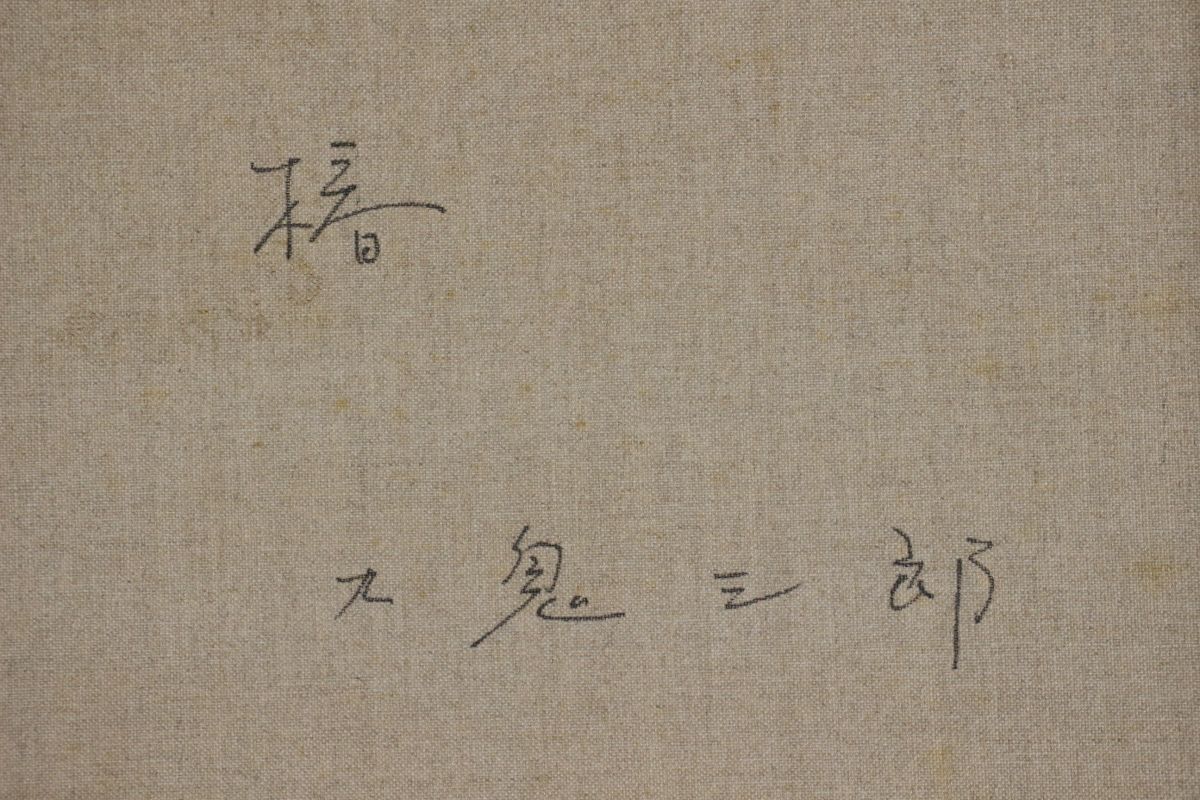 椿
九鬼三郎